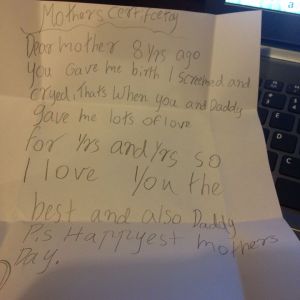 Mothers Certifcety
Dear mother 8 yrs ago
you Gave me birth I screemed and
cryed, Thats when you and Daddy
gave me lots of love
for yrs and yrs so
I love You the
best and also Daddy
P.s Happyest mothers
Day.